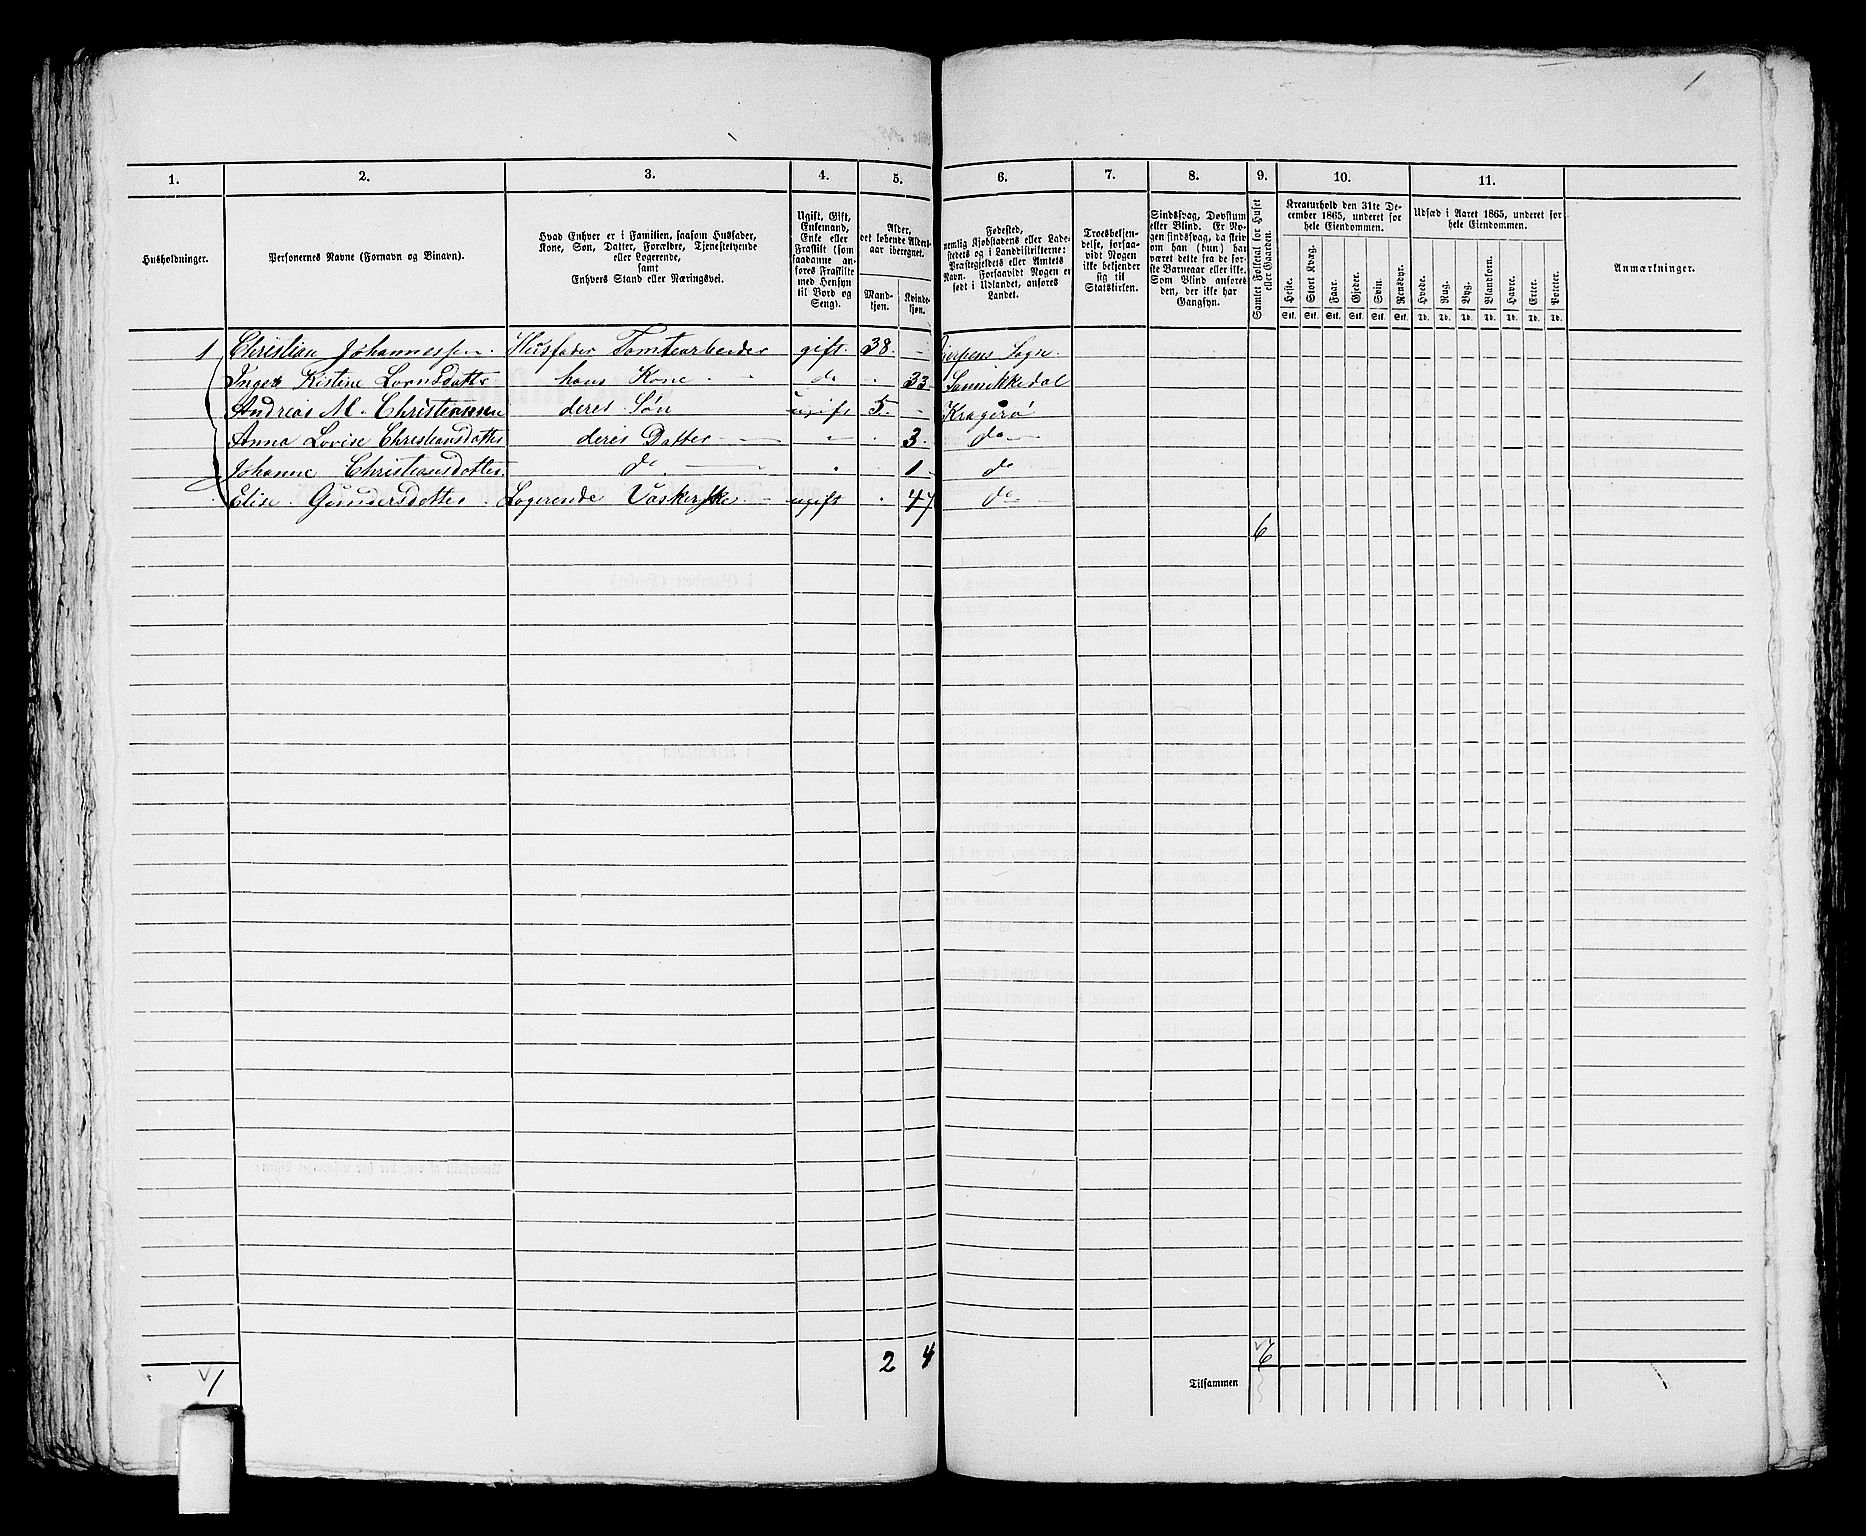 1
1. 2. 3. 4. 5. 6. 7. 8. 9. 10. 11.
Husholdninger.
Personernes Navne (Fornavn og Binavn).
Hvad Enhver er i Familien, saasom Husfader,
Kone, Søn, Datter, Forældre, Tjenestetyende
eller Logerende,
samt
Enhvers Stand eller Næringsvei.
Ugift, Gift,
Enkemand,
Enke eller
Fraskilt (som
saadanne an-
føres Fraskilte
med Hensyn
til Bord og
Seng).
Alder,
det løbende Alders-
aar iberegnet.
Mand-
kjøn.
Kvinde-
kjøn.
Fødested,
nemlig Kjøbstadens eller Lade-
stedets og i Landdistrikterne:
Præstegjeldets eller Amtets
Navn. Forsaavidt Nogen er
født i Udlandet, anføres
Landet.
Troesbekjen-
delse, forsaa-
vidt Nogen
ikke bekjender
sig til
Statskirken.
Sindssvag, Døvstum
eller Blind. Er No-
gen sindssvag, da skriv
om han (hun) har
været dette fra de før-
ste Barneaar eller ikke.
Som Blind anføres
den, der ikke har
Gangsyn.
Samlet Folketal for Huset
eller Gaarden.
Kreaturhold den 31te De-
cember 1865, underet for
hele Eiendommen.
Heste. Stort Kvæg. Faar. Gjeder. Svin. Rensdyr.
Stk. Stk. Stk. Stk. Stk. Stk.
Udsæd i Aaret 1865, underet for
hele Eiendommen.
Hvede. Rug. Byg. Blandkorn. Havre. Erter. Poteter.
Td. Td. Td. Td. Td. Td. Td.
Anmærkninger.
1 Christian Johannessen Husfader Tomtearbeider gift 38 - Gjerpens Sogn
Inger Kistine Lorns Datter hans Kone do 33 Sannikkedal
Andreas M. Christiansen deres Søn ugift 5 - Kragerø
Anna Lovise Christiansdatter deres Datter " 3 do
Johanne Christiansdatter do " 1 do
Elise Gundersdatter Logerende Vaskerske ugift 47 do
6
2 4 6
Tilsammen
1